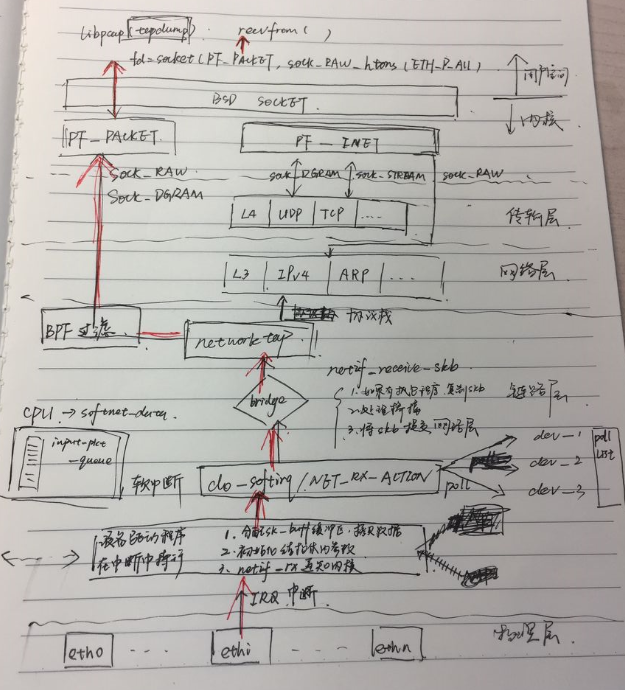 libpcap (tcpdump)
recvfrom( )
fd=socket(PF_PACKET, sock_RAW_htons(ETH_P_All)
用户空间
BSD SOCKET
内核
PF_PACKET
PF_INET
SOCK_RAW
SOCK_DGRAM
sock_DGRAM
sock_STREAM
sock_RAW
L4 UDP TCP ....
传输层
L3 IPv4 ARP ....
网络层
协议栈
BPF过滤
network tap
netif_receive_skb
bridge
1.如果有抓包程序,复制skb
2.处理桥接
3.将skb提交网络层
链路层
CPU → softnet_data
input_pkt
_queue
软中断
do_softirq / NET_RX_ACTION
poll
dev_1
dev_2
dev_3
poll
list
驱动的程序
在中断中执行
1.分配sk_buff缓冲区,拷贝数据
2.初始化结构体的参数
3.netif_rx通知内核
IRQ 中断
物理层
eth0 ... ethi ... ethn